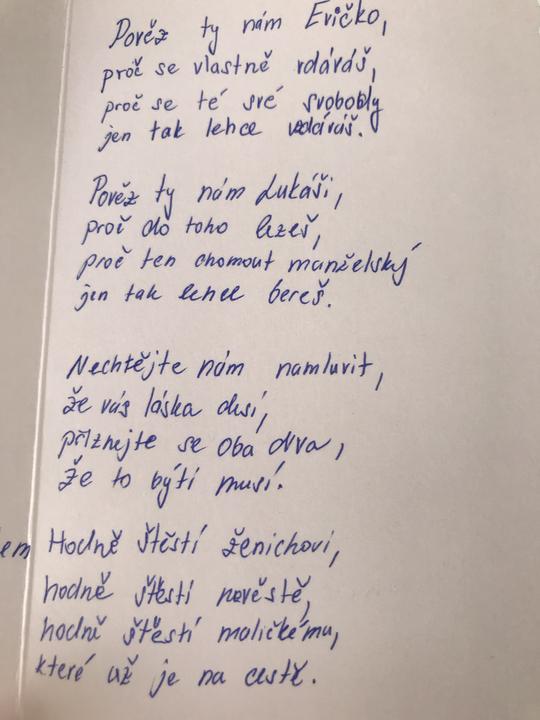 Pověz ty nám Evičko,
proč se vlastně vdáváš,
proč se té své svobody
jen tak lehce vzdáváš.
Pověz ty nám Lukáši,
proč do toho lezeš,
proč ten chomout manželský
jen tak lehce bereš.
Nechtějte nám namluvit,
že vás láska dusí,
přiznejte se oba dva,
že to býti musí.
em Hodně štěstí ženichovi,
hodně štěstí nevěstě,
hodně štěstí maličkému,
které už je na cestě.